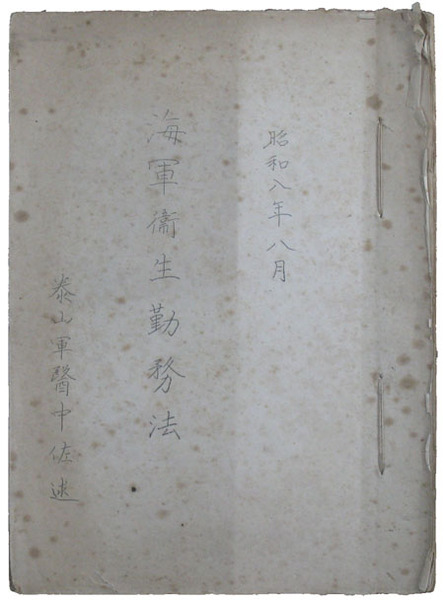 昭和八年八月
海軍衞生勤務法
泰山軍醫中佐述